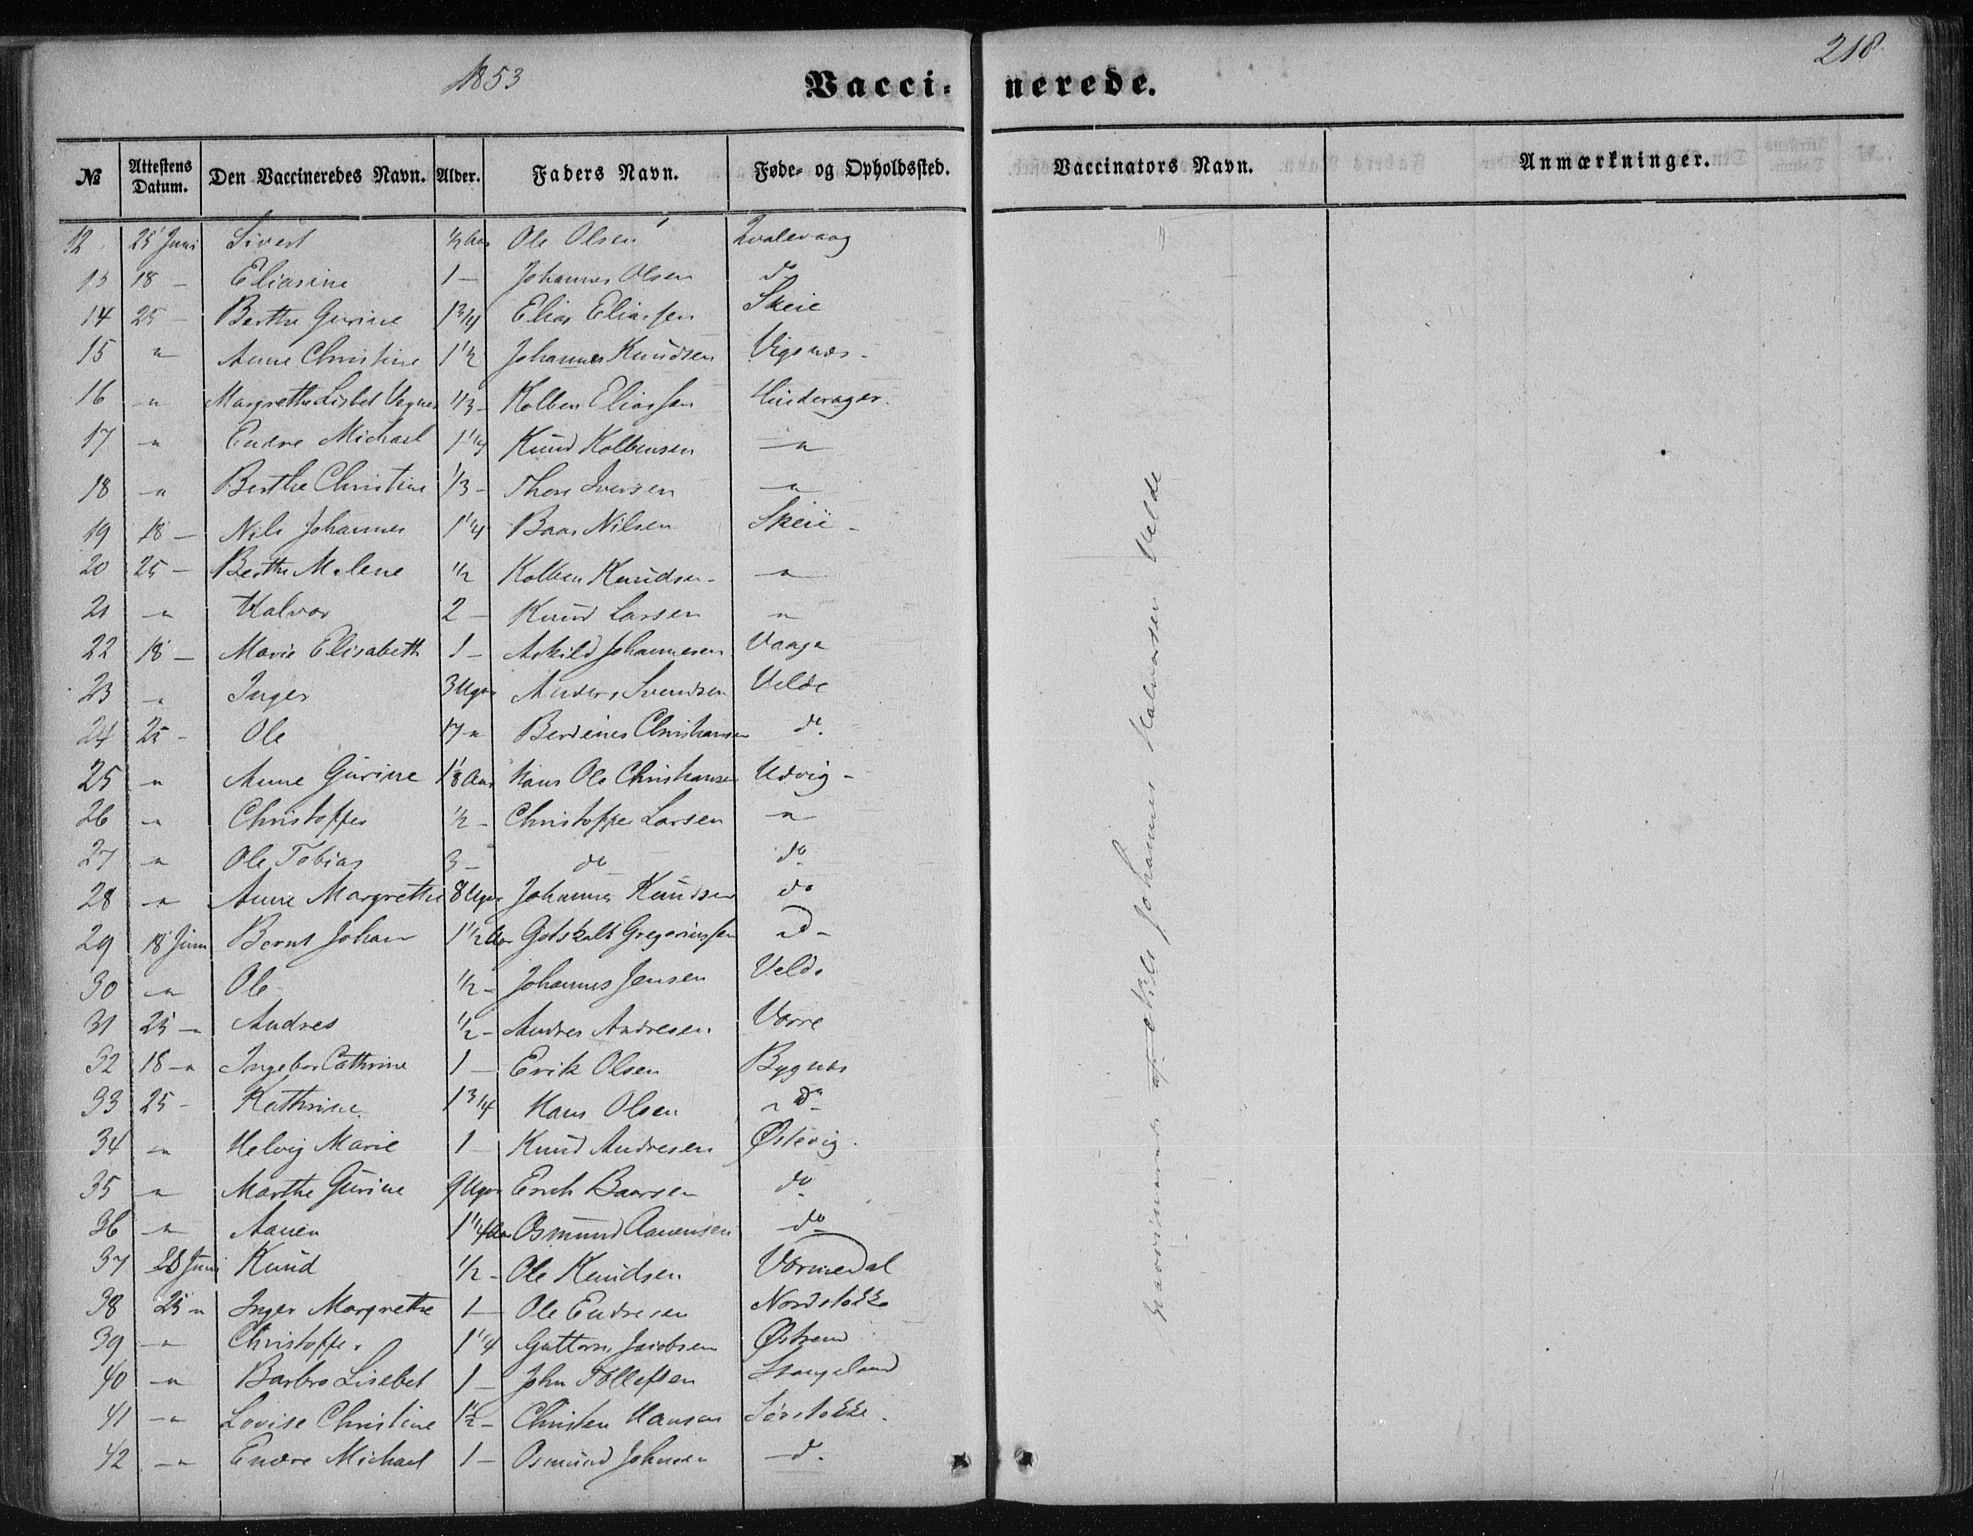 218.
1853
Vacci- nerede.
№ Attestens Datum. Den Vaccineredes Navn. Alder. Faders Navn. Føde- og Opholdssted. Vaccinators Navn. Anmærkninger.
12 25 Juni Sivert ½ Aar Ole Olsen Qvalevaag
13 18 - Eliasine 1 - Johannes Olsen do
14 25 - Berthe Gurine 1 3/4 Elias Eliassen Skeie
15 " Anne Christine 1 1/2 Johannes Knudsen Vigsnes
16 " Margrethe Lisbet 1/3 - Kolben Eliassen Hinderager
17 " Endre Michael 1 1/4 Knud Kolbensen "
18 " Berthe Christine 1/3 - Thore Iversen "
19 18 - Nils Johannes 1 1/4 Baar Nilsen Skeie -
20 25 - Berthe Malene 1/2 Kolben Knudsen "
21 " Halvor 2 - Knud Larsen "
22 18 - Marie Elisabeth 1 - Askild Johannesen Vaage
23 " Inger 3 Uger Anders Svendsen Velde
24 25 - Ole 17 " Berdines Christiansen do.
25 " Anne Gurine 1 1/8 Aar Hans Ole Christiansen Udvig -
26 " Christoffer 1/2 - Christoffer Larsen "
27 " Ole Tobias 3 - do do
28 " Anne Margrethe 8 Uger Johannes Knudsen do
29 18 Juni Bernt Johan 1 1/2 Aar Gotskalk Gregoriussen d -
30 " Ole 1/2 - Johannes Jensen Velde
31 25 - Andres 1/2 - Andres Andresen Vorre
32 18 - Ingebor Cathrine 1 - Erik Olsen Bygnes
33 25 - Kathrine 1 3/4 Hans Olsen do
34 " Helvig Marie 1 - Knud Andresen Østevig.
35 " Marthe Gurine 9 Uger Erich Baarsen do
36 " Aanen 1 1/4 Aar Osmund Aanensen do
37 Juni Knud 1/2 - Ole Knudsen Vormedal
38 25 " Inger Margrethe 1 - Ole Endresen Nordstokke
39 " Christoffer 1 1/4 Guttorm Jacobsen Østrem
40 " Barbro Lisebet 1 - John Tollefsen Stangeland
41 " Lovise Christine 1 1/2 - Christen Hansen Sørstokke.
42 " Endre Michael 1 - Osmund Johnsen d.
af Niels Johannes Halvorsen Velde